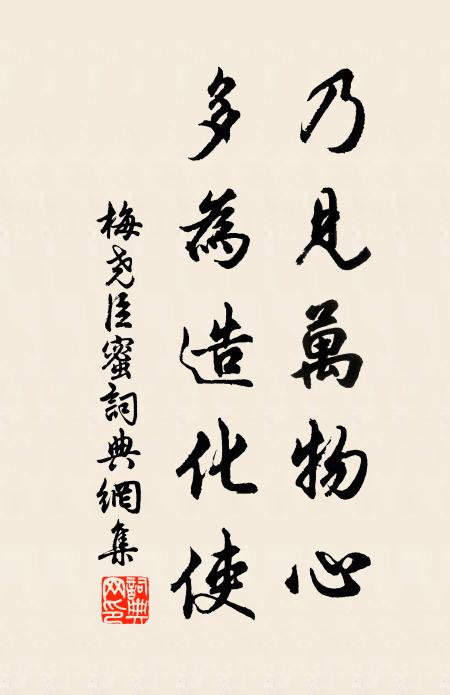 乃見萬物心
多為造化使
梅堯臣蜜詞典網集
詞典網印